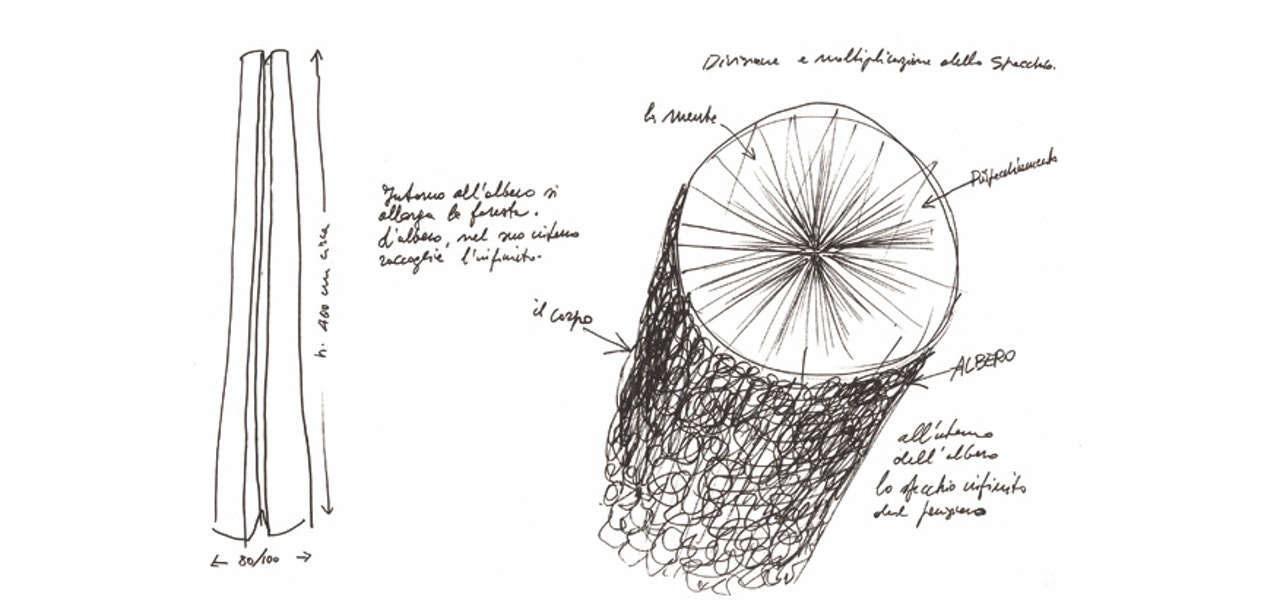 Divisione e moltiplicazione dello Specchio.
la mente
Rispecchiamento
Intorno all'albero si
allarga la foresta.
L'albero, nel suo interno
raccoglie l'infinito.
h. 400 cm circa
il corpo
ALBERO
all'interno
dell'albero
lo specchio infinito
del pensiero
80/100